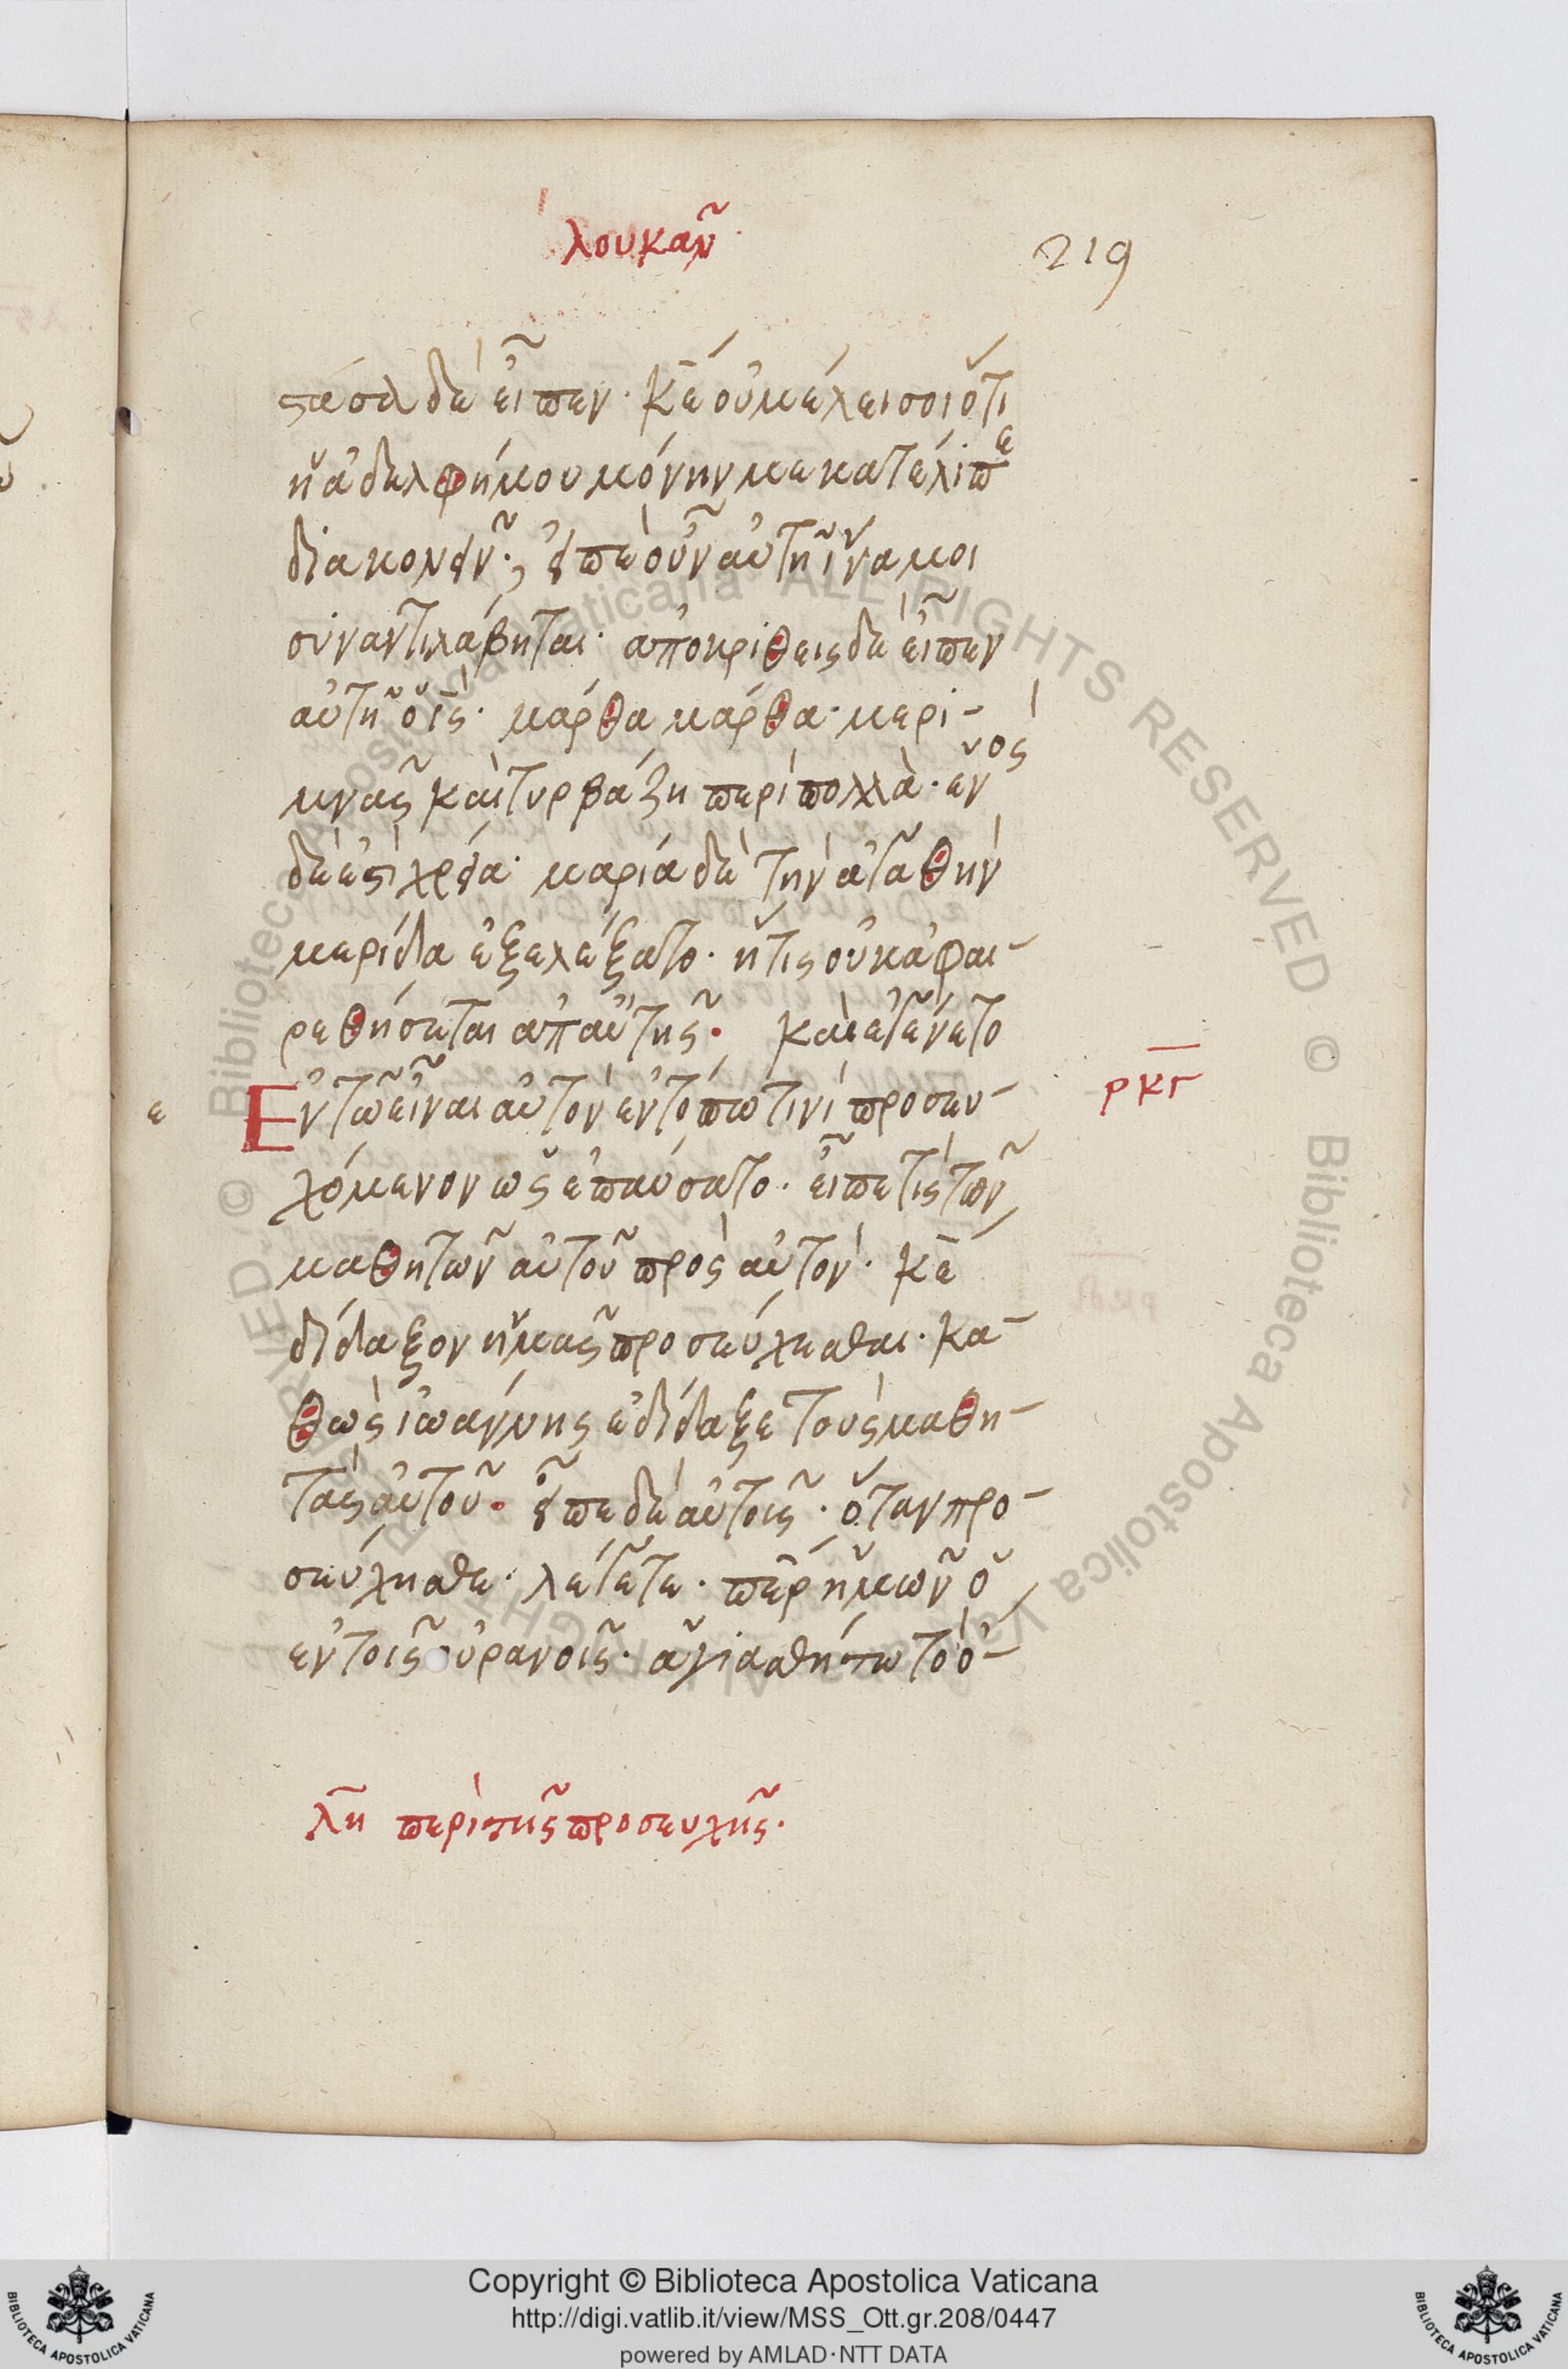 λουκᾶν
219
στᾶσα δὲ εἶπεν· κε̄ οὐ μέλει σοι ὅτι
ἡ ἀδελφή μου μόνην με κατέλιπε
διακονεῖν·, εἰπὲ οὖν αὐτῆ ἵνα μοι
συναντιλάβηται· ἀποκριθεὶς δὲ εἶπεν
αὐτῆ ὁ ις̄· μάρθα μάρθα· μερι-
μνᾶς καὶ τυρβάζη περὶ πολλὰ· ἑνός
δέ ἐστὶ χρεία· μαρία δὲ τὴν ἀγαθὴν
μερίδα ἐξελέξατο· ἥτις οὐκ ἀφαι-
ρεθήσεται ἀπ αὐτῆς· καὶ ἐγένετο
ε Ἐν τῶ εἶναι αὐτὸν ἐν τόπω τινὶ προσευ-
ρκγ
χόμενον ὡς ἐπαύσατο· εἶπέ τις τῶν
μαθητῶν αὐτοῦ πρὸς αὐτόν· κε̄
δίδαξον ἡμᾶς προσεύχεσθαι· κα-
θὼς ἰωάννης ἐδίδαξε τοὺς μαθη-
τὰς αὐτοῦ· εἶπε δὲ αὐτοῖς· ὅταν προ-
σεύχησθε· λέγετε· περ ἡμῶν ὁ
ἐν τοῖς οὐρανοῖς· ἁγιασθήτω τὸ ὄ-
λη περὶ τῆς προσευχῆς·
Copyright © Biblioteca Apostolica Vaticana
http://digi.vatlib.it/view/MSS_Ott.gr.208/0447
powered by AMLAD·NTT DATA